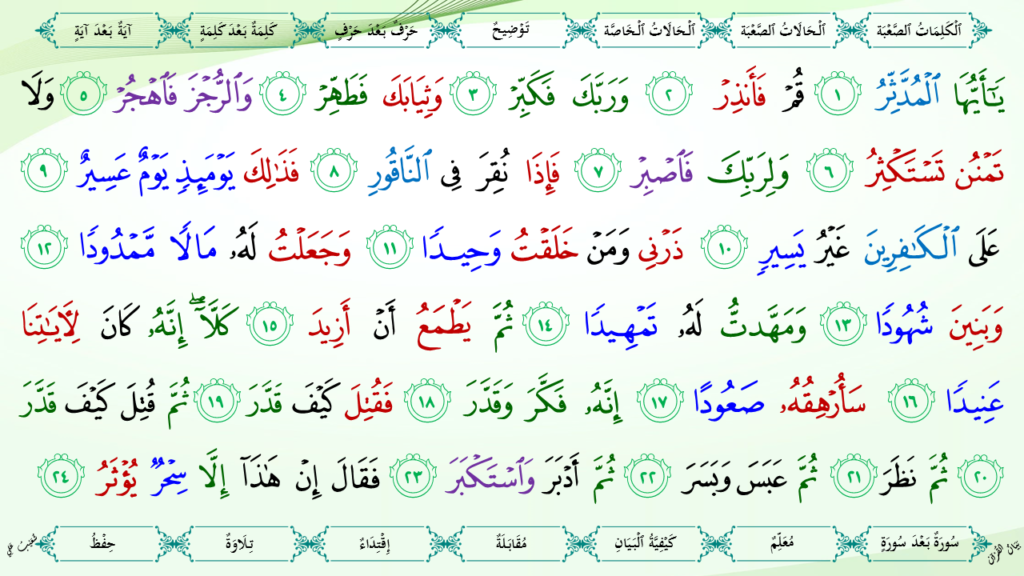 اَلْكَلِمَاتُ الصَّعْبَة اَلْحَالَاتُ الصَّعْبَة اَلْحَالَاتُ الْخَاصَّة تَوْضِيحٌ حَرْفٌ بَعْدَ حَرْفٍ كَلِمَةٌ بَعْدَ كَلِمَةٍ آيَةٌ بَعْدَ آيَةٍ
يَـٰٓأَيُّهَا ٱلۡمُدَّثِّرُ ١ قُمۡ فَأَنذِرۡ ٢ وَرَبَّكَ فَكَبِّرۡ ٣ وَثِيَابَكَ فَطَهِّرۡ ٤ وَٱلرُّجۡزَ فَٱهۡجُرۡ ٥ وَلَا
تَمۡنُن تَسۡتَكۡثِرُ ٦ وَلِرَبِّكَ فَٱصۡبِرۡ ٧ فَإِذَا نُقِرَ فِى ٱلنَّاقُورِ ٨ فَذَٰلِكَ يَوۡمَئِذٖ يَوۡمٌ عَسِيرٌ ٩
عَلَى ٱلۡكَـٰفِرِينَ غَيۡرُ يَسِيرٖ ١٠ ذَرۡنِى وَمَنۡ خَلَقۡتُ وَحِيدٗا ١١ وَجَعَلۡتُ لَهُۥ مَالٗا مَّمۡدُودٗا ١٢
وَبَنِينَ شُهُودٗا ١٣ وَمَهَّدتُّ لَهُۥ تَمۡهِيدٗا ١٤ ثُمَّ يَطۡمَعُ أَنۡ أَزِيدَ ١٥ كَلَّآۖ إِنَّهُۥ كَانَ لِأَيَـٰتِنَا
عَنِيدٗا ١٦ سَأُرۡهِقُهُۥ صَعُودًا ١٧ إِنَّهُۥ فَكَّرَ وَقَدَّرَ ١٨ فَقُتِلَ كَيۡفَ قَدَّرَ ١٩ ثُمَّ قُتِلَ كَيۡفَ قَدَّرَ
٢٠ ثُمَّ نَظَرَ ٢١ ثُمَّ عَبَسَ وَبَسَرَ ٢٢ ثُمَّ أَدۡبَرَ وَٱسۡتَكۡبَرَ ٢٣ فَقَالَ إِنۡ هَـٰذَآ إِلَّا سِحۡرٌ يُؤۡثَرُ ٢٤
سُورَةٌ بَعْدَ سُورَةٍ مُعَلِّمٌ كَيْفِيَّةُ الْبَيَانِ مُقَابَلَةٌ إِقْتِدَاءٌ تِلَاوَةٌ حِفْظُ